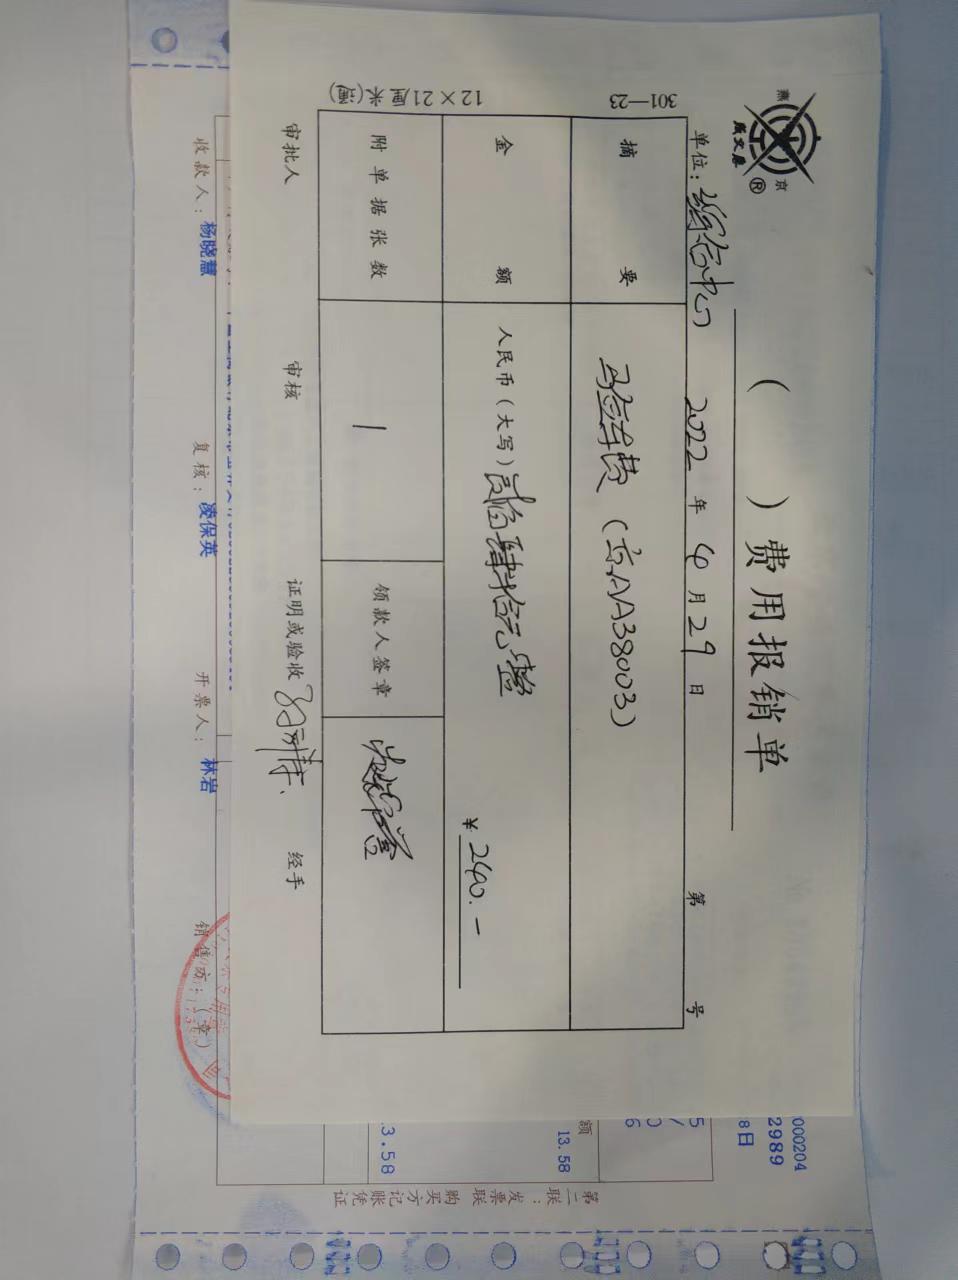 燕
京
成文厚
®
( ) 费用报销单
单位：综合中心 2022 年 4 月 29 日 第 号
301—23
摘 要
验车费（京AA38003）
金 额
人民币（大写）贰佰肆拾元整 ￥240.—
12×21厘米(通)
附单据张数
1
领款人签章
审批人 审核 证明或验收 经手
000204
2989
8日
额
13.58
3.58
收款人：杨晓慧 复核：凌保英 开票人：林岩 销售方：(章)
第二联：发票联 购买方记账凭证